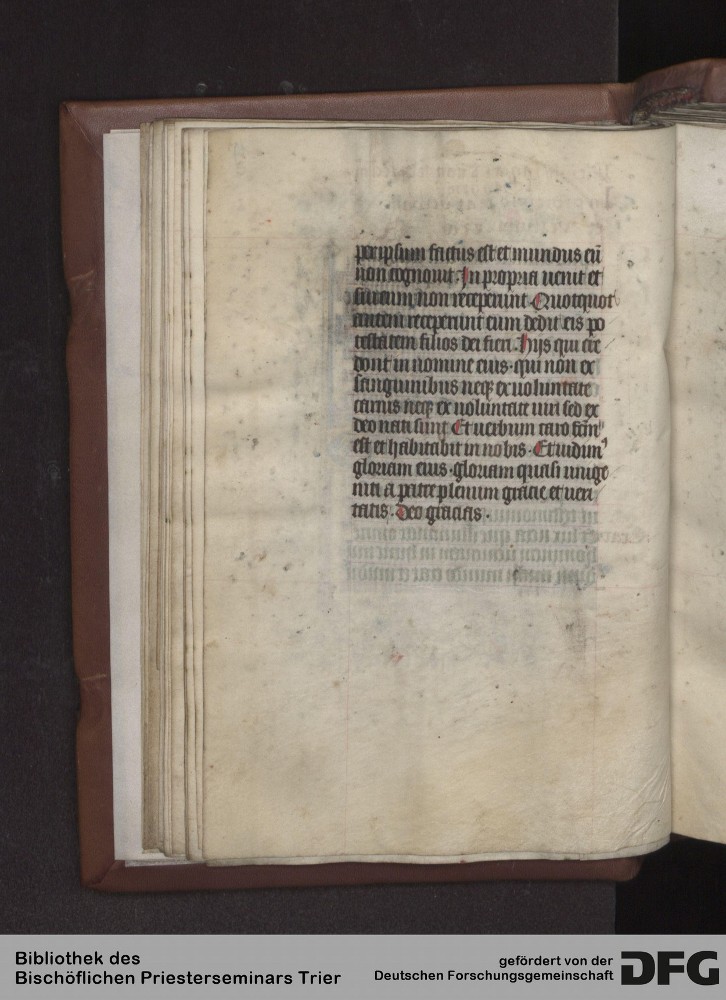 per ipsum factus est et mundus eū
non cognouit. In propria uenit et
sui eum non receperunt. Quotquot
autem receperunt eum dedit eis po
testatem filios dei fieri. Hijs qui cre
dont in nomine eius. qui non ex
sanguinibus neqꝫ ex uoluntate
carnis neqꝫ ex uoluntate uiri sed ex
deo nati sunt Et uerbum caro fc̄m
est et habitabit in nobis. Et uidimꝰ
gloriam eius. gloriam quasi unige
niti a patre plenum gracie et ueri
tatis. Deo gracias.
Bibliothek des
Bischöflichen Priesterseminars Trier
gefördert von der
Deutschen Forschungsgemeinschaft
DFG